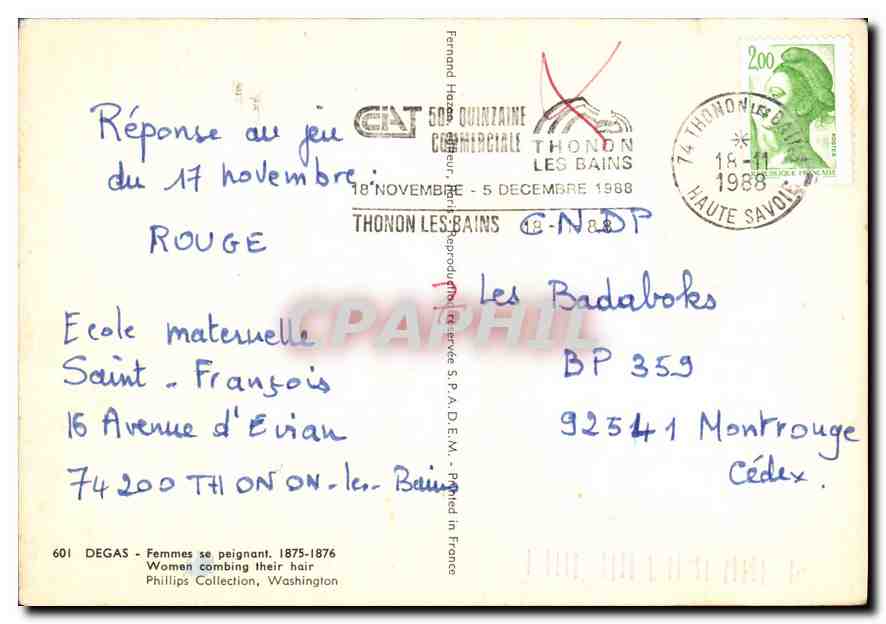 Réponse au jeu
du 17 novembre :
ROUGE
Ecole maternelle
Saint - François
16 Avenue d'Evian
74200 THONON-les-Bains
601 DEGAS - Femmes se peignant. 1875-1876
Women combing their hair
Phillips Collection, Washington
Fernand Hazan éditeur, Paris - Reproduction réservée S.P.A.D.E.M. - Printed in France
CIAT 50e QUINZAINE
COMMERCIALE
THONON
LES BAINS
18 NOVEMBRE - 5 DECEMBRE 1988
THONON LES BAINS 18-11 88
74 THONON LES BAINS
18-11
1988
HAUTE SAVOIE
2,00
POSTES
REPUBLIQUE FRANÇAISE
CNDP
Les Badaboks
BP 359
92541 Montrouge
Cédex.
CPAPHIL